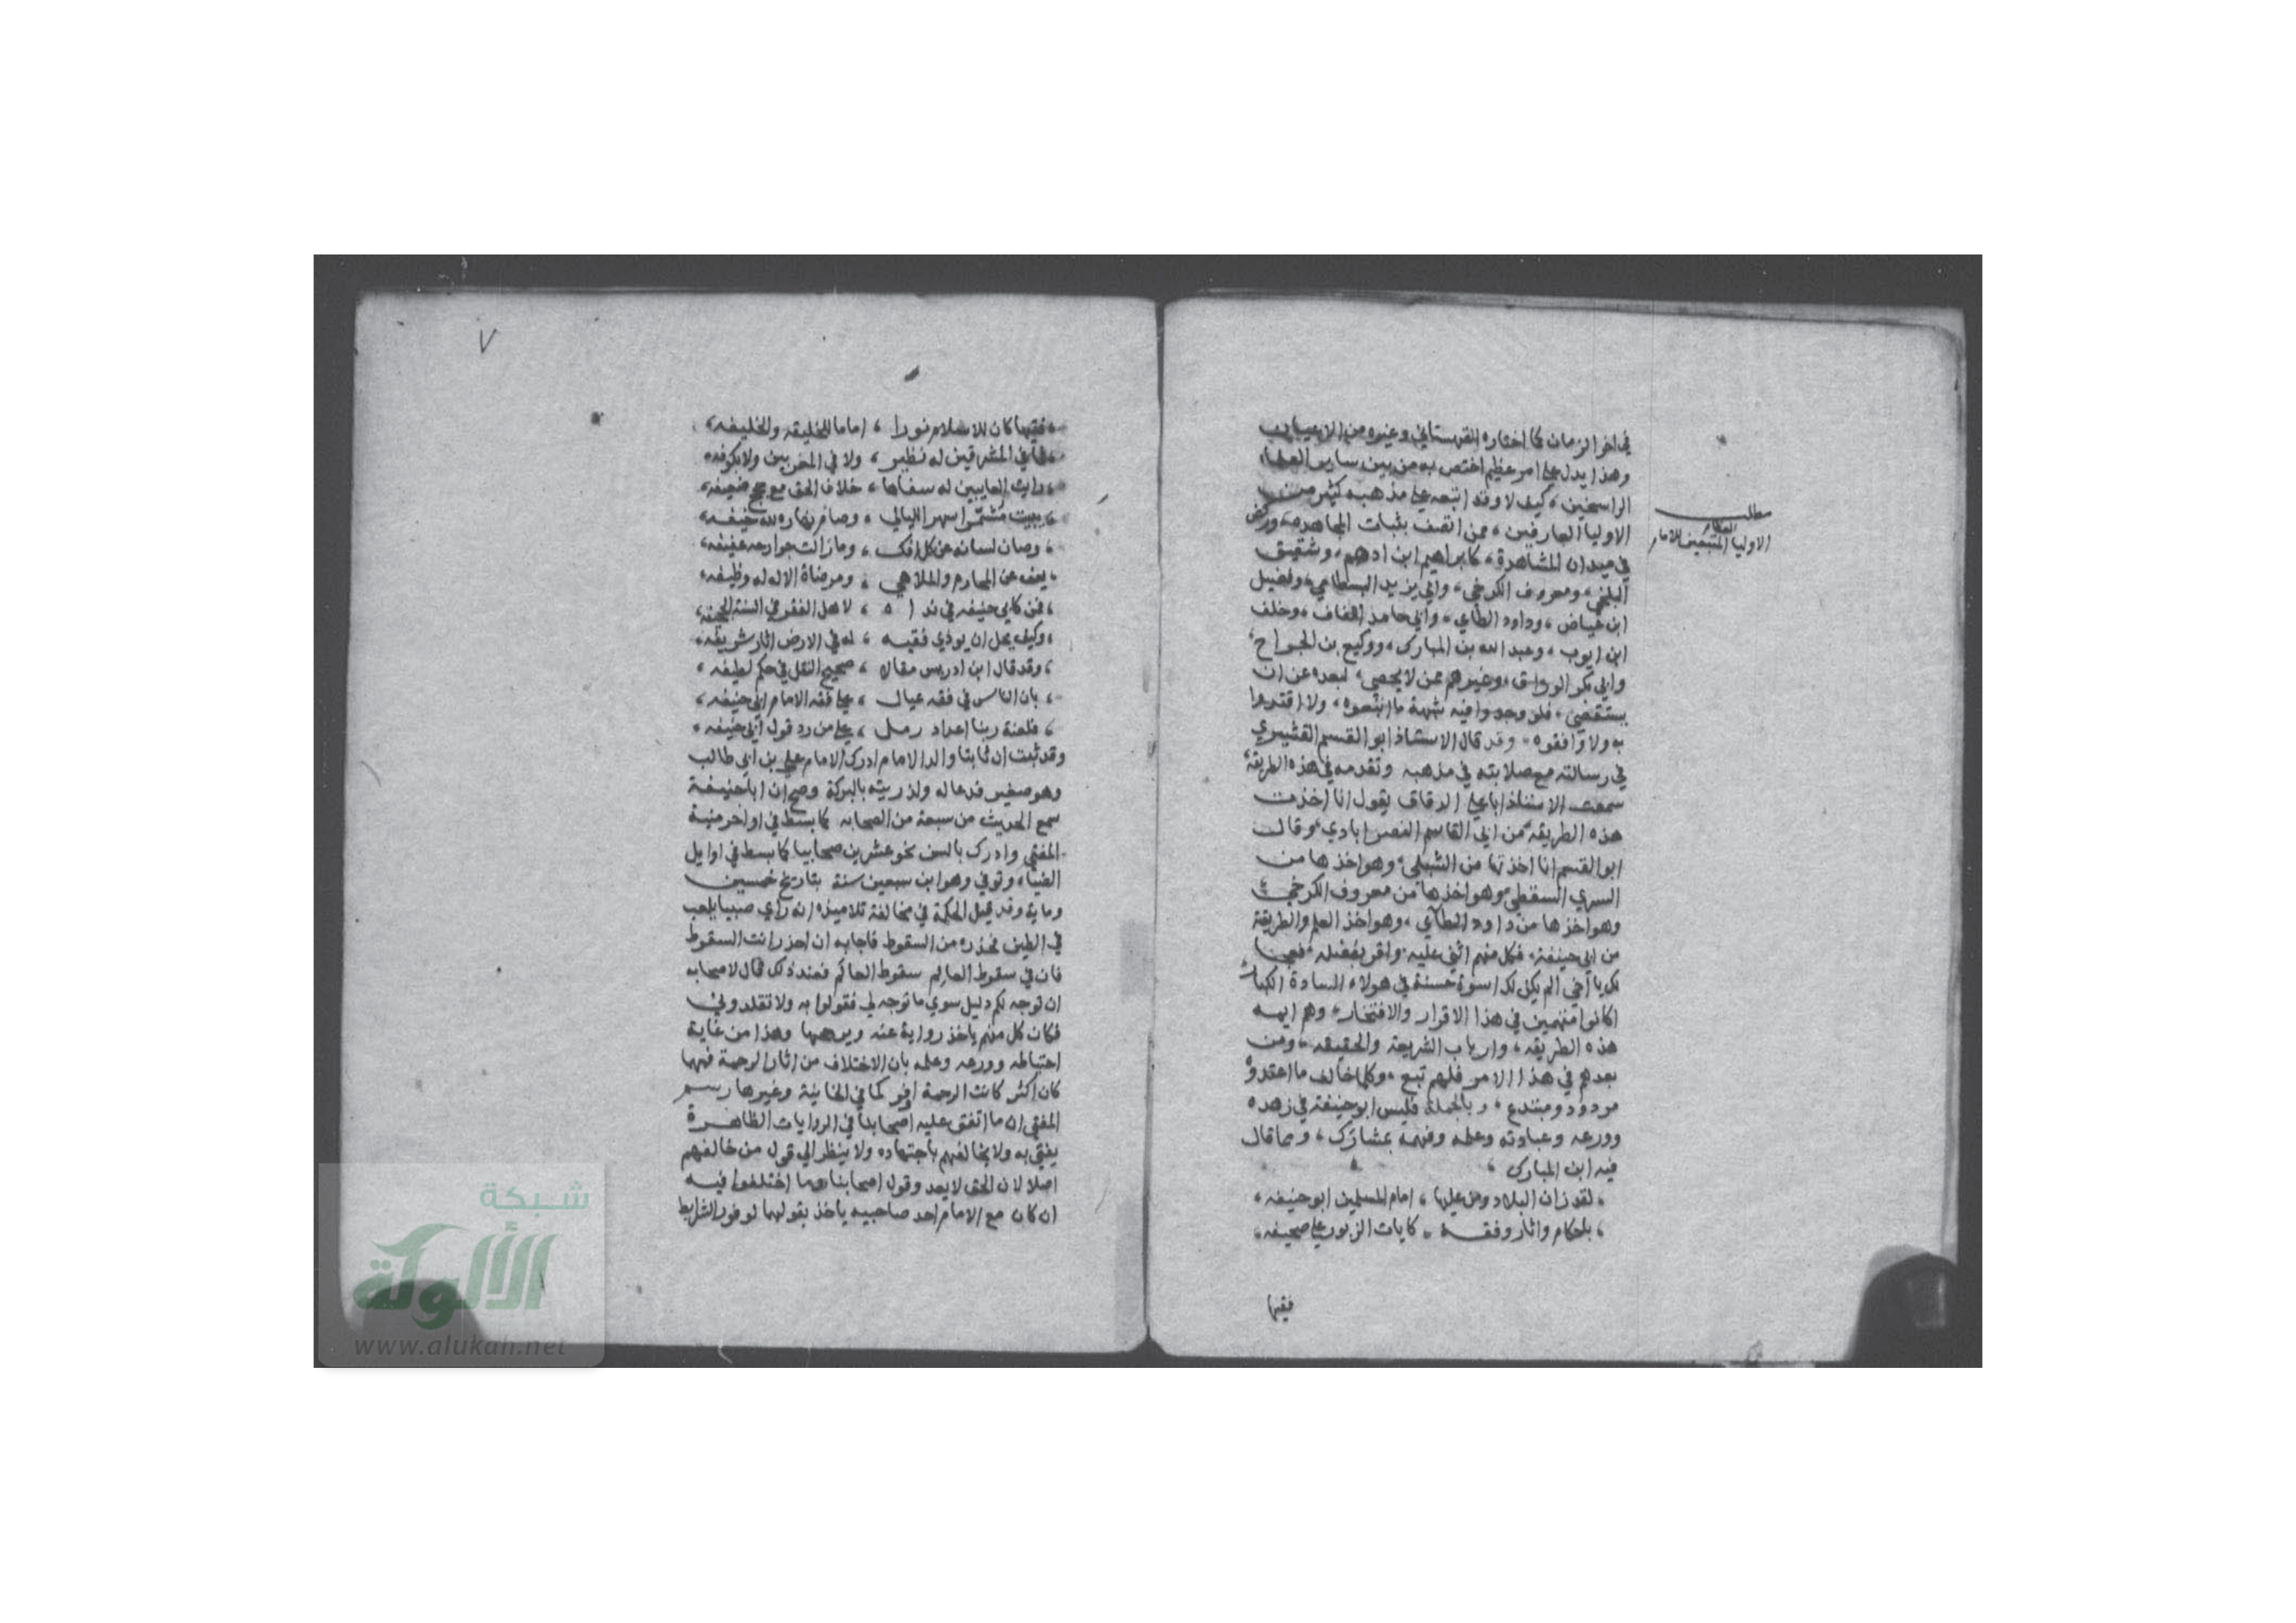 في اخر الزمان كما اختاره القهستاني وغيره من الاعيان
وهذا يدل على امر عظيم اختص به من بين ساير العلماء
الراسخين، كيف لا وقد اتبعه على مذهبه كثير من
الاوليا العارفين، ممن اتصف بثبات المجاهده، وركض
في ميدان المشاهدة، كابراهيم ابن ادهم، وشقيق
البلخي، ومعروف الكرخي، وابي يزيد البسطامي، وفضيل
ابن عياض، وداود الطاي، وابي حامد اللفاف، وخلف
ابن ايوب، وعبد الله بن المبارك، ووكيع بن الجراح،
وابي بكر الوراق، وغيرهم ممن لا يحصى، لبعده عن ان
يستقصى، فلو وجدوا فيه شبهة ما اتبعوه، ولا اقتدوا
به ولا وافقوه، وقد قال الاستاذ ابو القسم القشيري
في رسالته مع صلابته في مذهبه وتقدمه في هذه الطريقة،
سمعت الاستاذ ابا علي الدقاق يقول انا اخذت
هذه الطريقة من ابي القاسم النصر ابادي، وقال
ابو القسم انا اخذتها من الشبلي، وهو اخذها من
السري السقطي، وهو اخذها من معروف الكرخي،
وهو اخذها من داود الطاي، وهو اخذ العلم والطريقة
من ابي حنيفة، فكل منهم اثنى عليه، واقر بفضله، فعجبا
لك يا اخي الم يكن لك اسوة حسنة في هولاء السادة الكبار،
اكانوا متهمين في هذا الاقرار والافتخار، وهم ايمه
هذه الطريقه، وارباب الشريعة والحقيقه، ومن
بعدهم في هذا الامر فلهم تبع، وكلما خالف ما اعتمدوه
مردود ومبتدع، وبالجملة فليس ابو حنيفة في زهده
وورعه وعبادته وعلمه وفهمه بمشارك، ومما قال
فيه ابن المبارك،
، لقد زان البلاد ومن عليها ، امام المسلمين ابو حنيفه ،
، باحكام واثار وفقـه ، كايات الزبور على صحيفه ،
فقيها
مطلب
الاوليا العظام المتبعين للامام
٧
، فقيها كان للاسلام نورا ، اماما للخليقه والخليفه ،
، فما في المشرقين له نظير ، ولا في المغربين ولا بكوفه ،
، رايت العايبين له سفاها ، خلاف الحق مع حجج ضعيفه ،
، يبيت مشمرا سهر الليالي ، وصام نهاره لله خيفه ،
، وصان لسانه عن كل افك ، وما زالت جوارحه عفيفه ،
، يعف عن المحارم والملاهي ، ومرضاة الاله له وظيفه ،
، فمن كابي حنيفه في نداه ، لاهل الفقر في السنة الجحفه ،
، وكيف يحل ان يوذي فقيه ، له في الارض اثار شريفه ،
، وقد قال ابن ادريس مقالا ، صحيح النقل في حكم لطيفه ،
، بان الناس في فقه عيال ، على فقه الامام ابي حنيفه ،
، فلعنة ربنا اعداد رمل ، على من رد قول ابي حنيفه ،
وقد ثبت ان ثابتا والد الامام ادرك الامام علي بن ابي طالب
وهو صغير فدعا له ولذريته بالبركة وصح ان ابا حنيفة
سمع الحديث من سبعة من الصحابه كما بسط في اواخر منية
المفتي وادرك بالسن نحو عشرين صحابيا كما بسط في اوايل
الضياء وتوفي وهو ابن سبعين سنة بتاريخ خمسين
وماية وقد قيل الحكمة في مخالفة تلاميذه انه راي صبيا يلعب
في الطين فحذره من السقوط فاجابه ان احذر انت السقوط
فان في سقوط العالِم سقوط العالَم فعند ذلك قال لاصحابه
ان توجه لكم دليل سوي ما توجه لي فقولوا به ولا تقلدوني
فكان كل منهم ياخذ رواية عنه ويرجحها وهذا من غاية
احتياطه وورعه وعلمه بان الاختلاف من اثار الرحمة فمهما
كان اكثر كانت الرحمة اوفر كما في الخانية وغيرها رسم
المفتي ان ما اتفق عليه اصحابنا في الروايات الظاهرة
يفتي به ولا يخالفهم باجتهاده ولا ينظر الي قول من خالفهم
اصلا لان الحق لا يعد وقول اصحابنا وما اختلفوا فيه
ان كان مع الامام احد صاحبيه ياخذ بقولهما لوفور الشرايط
شبكة
الألوكة
www.alukah.net